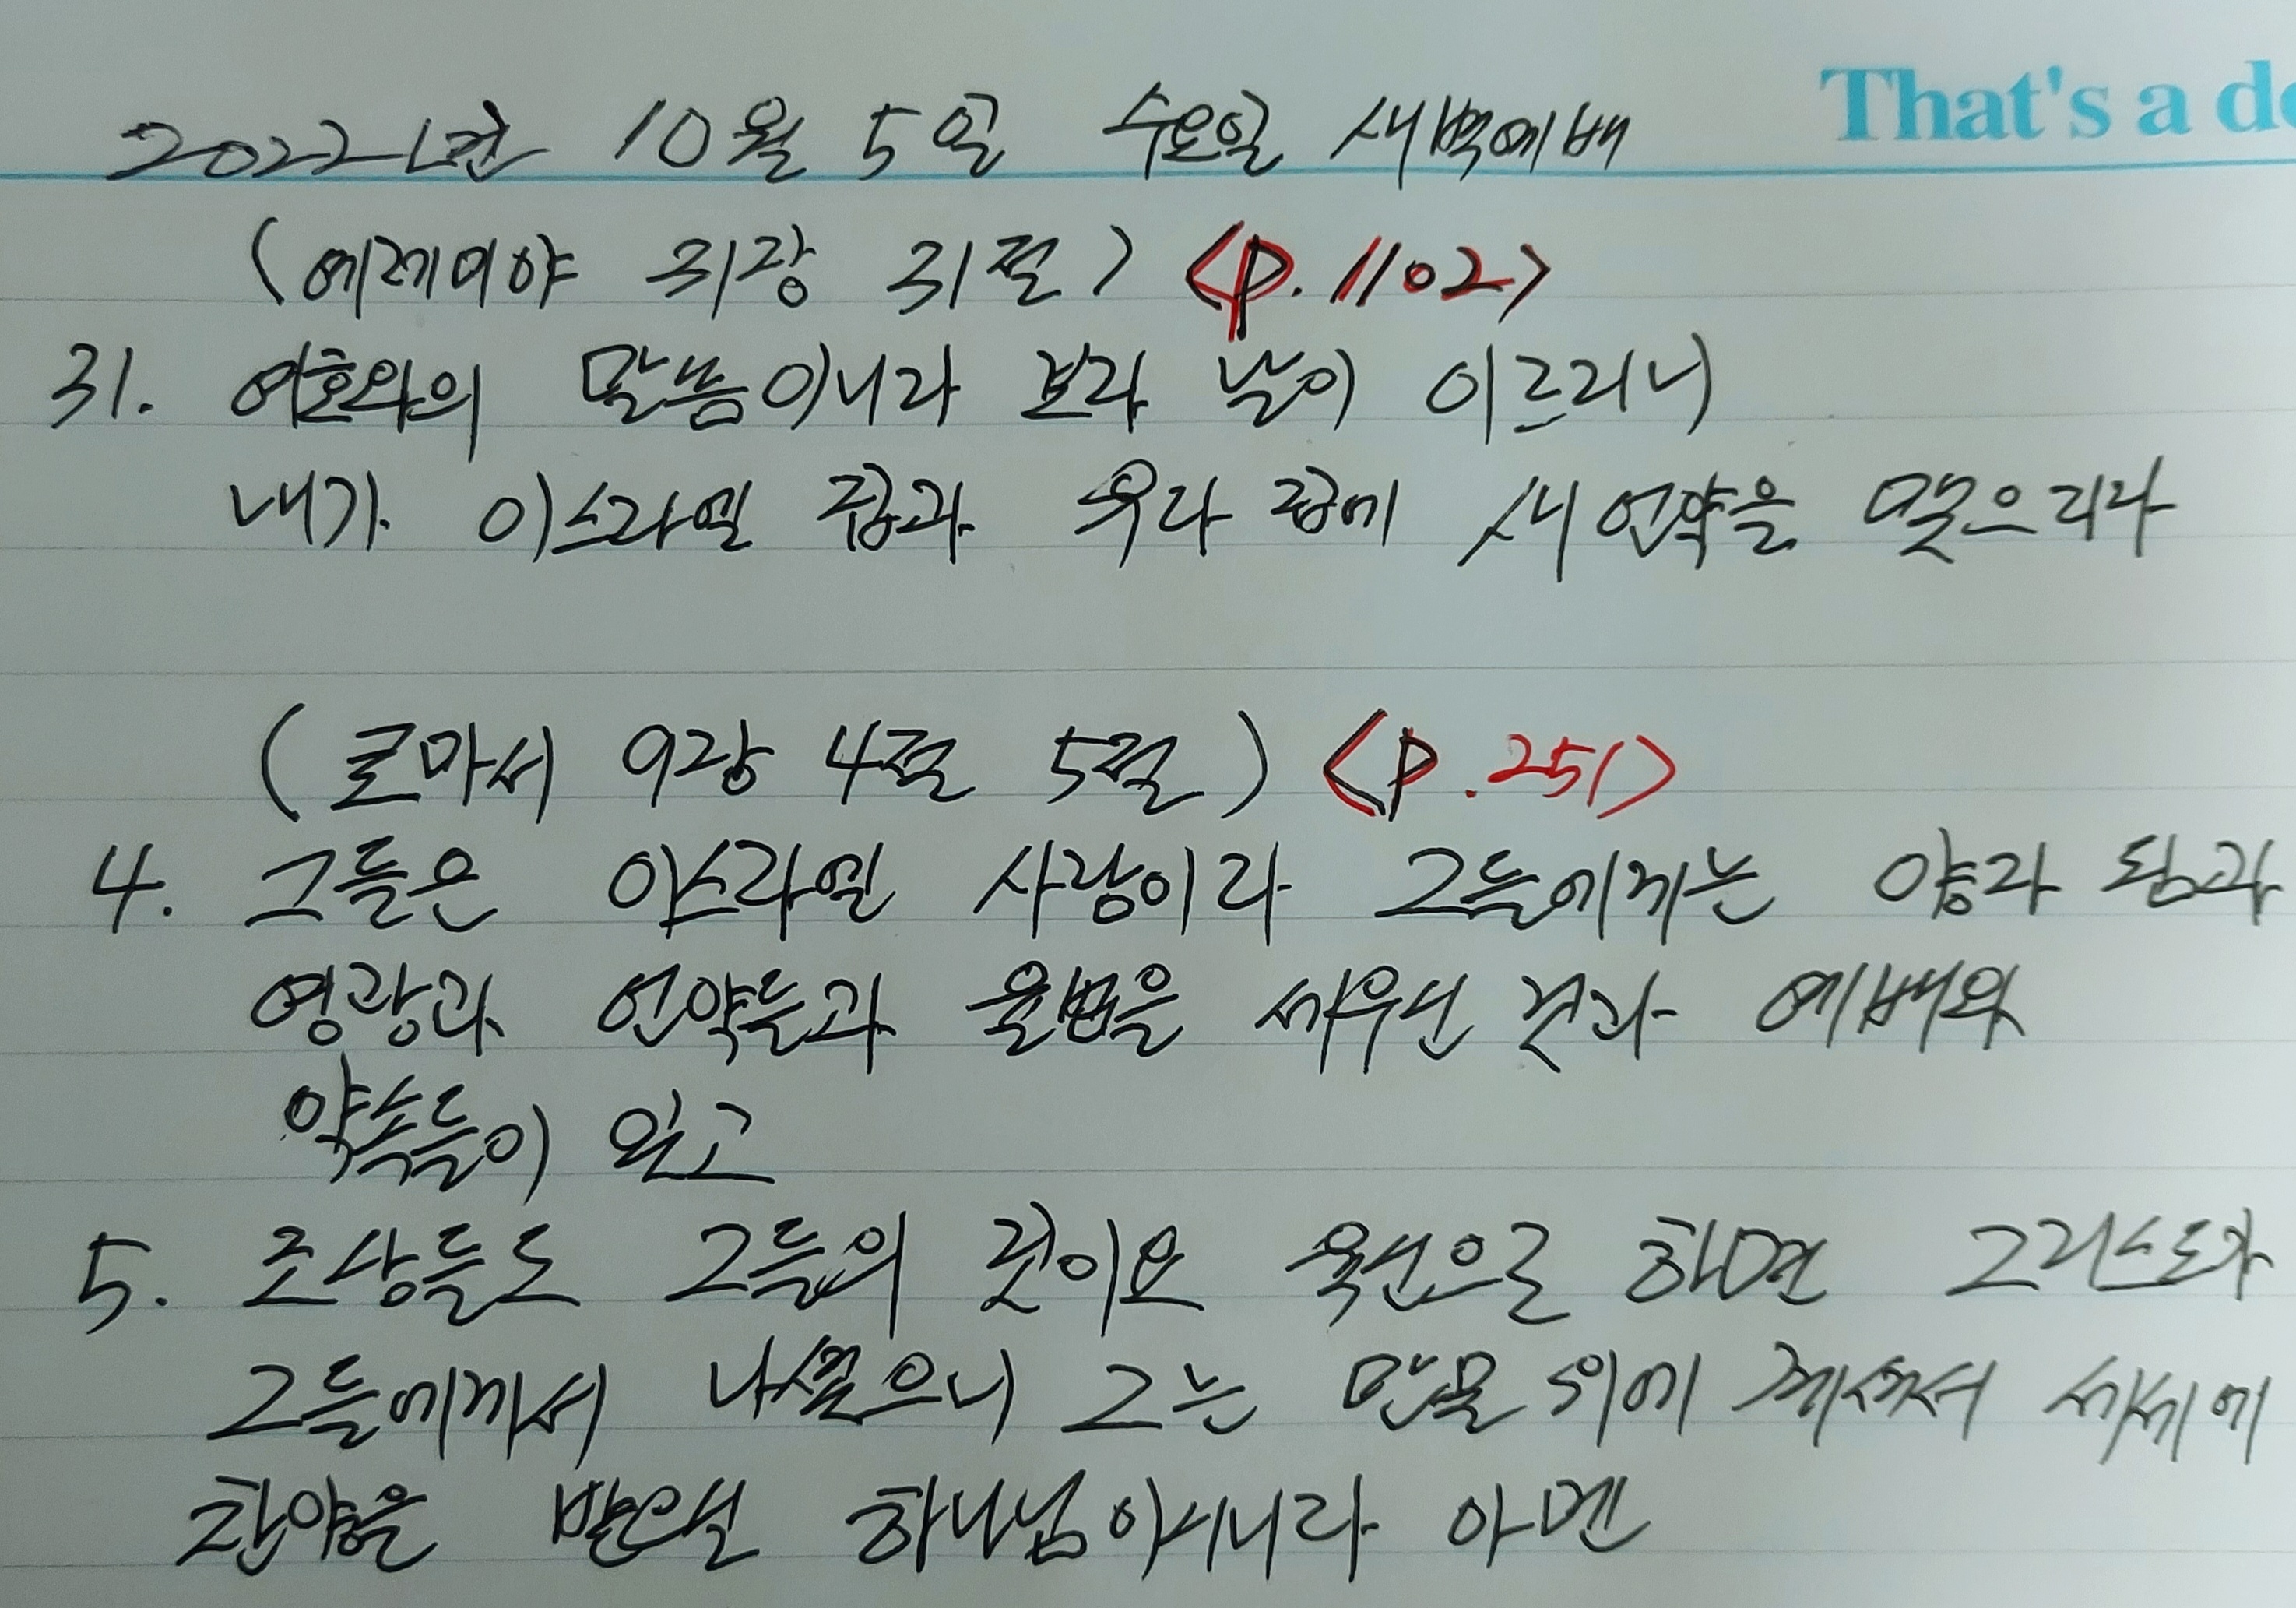 That's a de
2022년 10월 5일 수요일 새벽예배
(예레미야 31장 31절) <P. 1102>
31. 여호와의 말씀이니라 보라 날이 이르리니
내가 이스라엘 집과 유다 집에 새 언약을 맺으리라
(로마서 9장 4절 5절) <P. 251>
4. 그들은 이스라엘 사람이라 그들에게는 양자 됨과
영광과 언약들과 율법을 세우신 것과 예배와
약속들이 있고
5. 조상들도 그들의 것이요 육신으로 하면 그리스도가
그들에게서 나셨으니 그는 만물 위에 계셔서 세세에
찬양을 받으실 하나님이시니라 아멘